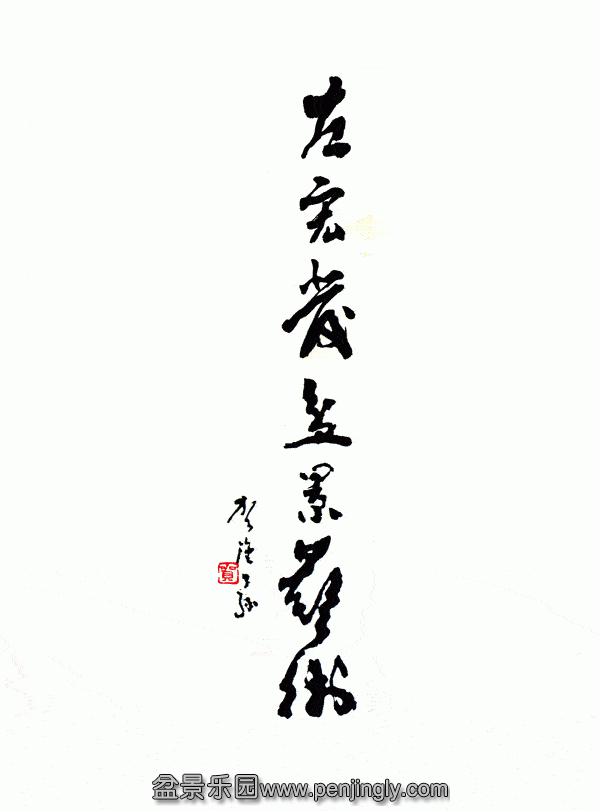 左宏发盆景藝術
盆景乐园www.penjingly.com